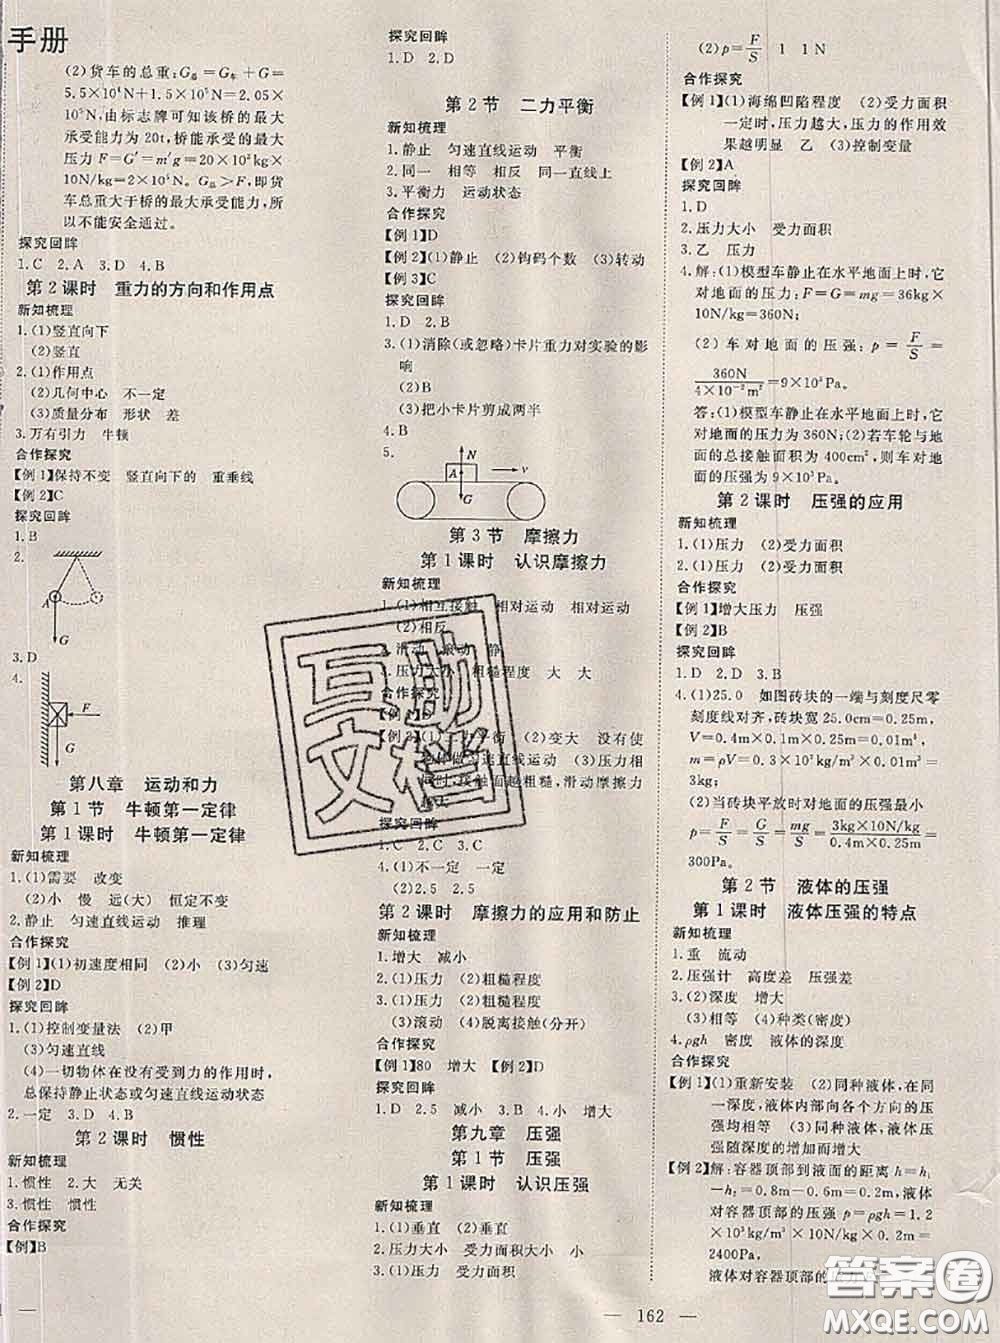 手册
(2)货车的总重:G总=G车+G=
5.5×10⁴N+1.5×10⁵N=2.05×
10⁵N,由标志牌可知该桥的最大
承受能力为20t,桥能承受的最大
压力F=G′=m′g=20×10³kg×
10N/kg=2×10⁵N。G总>F,即货
车总重大于桥的最大承受能力,所
以不能安全通过。
探究回眸
1.C 2.A 3.D 4.B
第2课时 重力的方向和作用点
新知梳理
1.(1)竖直向下
(2)竖直
2.(1)作用点
(2)几何中心 不一定
(3)质量分布 形状 差
3.万有引力 牛顿
合作探究
【例1】保持不变 竖直向下的 重垂线
【例2】C
探究回眸
1.B
2.
A
G
3.D
4.
F
G
第八章 运动和力
第1节 牛顿第一定律
第1课时 牛顿第一定律
新知梳理
1.(1)需要 改变
(2)小 慢 远(大) 恒定不变
2.静止 匀速直线运动 推理
合作探究
【例1】(1)初速度相同 (2)小 (3)匀速
【例2】D
探究回眸
1.(1)控制变量法 (2)甲
(3)匀速直线
(4)一切物体在没有受到力的作用时,
总保持静止状态或匀速直线运动状态
2.一定 3.D 4.B
第2课时 惯性
新知梳理
1.惯性 2.大 无关
3.惯性 惯性
合作探究
【例】B
探究回眸
1.D 2.D
第2节 二力平衡
新知梳理
1.静止 匀速直线运动 平衡
2.同一 相等 相反 同一直线上
3.平衡力 运动状态
合作探究
【例1】D
【例2】(1)静止 (2)钩码个数 (3)转动
【例3】C
探究回眸
1.D 2.B
3.(1)消除(或忽略)卡片重力对实验的影
响
(2)B
(3)把小卡片剪成两半
4.B
5.
N
A
v
G
第3节 摩擦力
第1课时 认识摩擦力
新知梳理
1.(1)相互接触 相对运动 相对运动
(2)相反
2.滑动 滚动 静
3.压力大小 粗糙程度 大 大
合作探究
【例1】D
【例2】(1)二力平衡 (2)变大 没有使
木块做匀速直线运动 (3)压力相
同时,接触面越粗糙,滑动摩擦力
探究回眸
1.C 2.C 3.C
4.(1)不一定 一定
(2)2.5 2.5
第2课时 摩擦力的应用和防止
新知梳理
1.增大 减小
2.(1)压力 (2)粗糙程度
3.(1)压力 (2)粗糙程度
(3)滚动 (4)脱离接触(分开)
合作探究
【例1】80 增大 【例2】D
探究回眸
1.D 2.5 减小 3.D 4.小 增大
第九章 压强
第1节 压强
第1课时 认识压强
新知梳理
1.(1)垂直 (2)垂直
2.压力大小 受力面积大小 小
3.(1)压力 受力面积
(2)p=F/S 1 1N
合作探究
【例1】(1)海绵凹陷程度 (2)受力面积
一定时,压力越大,压力的作用效
果越明显 乙 (3)控制变量
【例2】A
探究回眸
1.D
2.压力大小 受力面积
3.乙 压力
4.解:(1)模型车静止在水平地面上时,它
对地面的压力:F=G=mg=36kg×
10N/kg=360N;
(2)车对地面的压强:p=F/S=
360N/4×10⁻²m²=9×10³Pa。
答:(1)模型车静止在水平地面上时,它
对地面的压力为360N;(2)若车轮与地
面的总接触面积为400cm²,则车对地
面的压强为9×10³Pa。
第2课时 压强的应用
新知梳理
1.(1)压力 (2)受力面积
2.(1)压力 (2)受力面积
合作探究
【例1】增大压力 压强
【例2】B
探究回眸
1.D 2.D 3.B
4.(1)25.0 如图砖块的一端与刻度尺零
刻度线对齐,砖块宽25.0cm=0.25m,
V=0.4m×0.1m×0.25m=0.01m³,
m=ρV=0.3×10³kg/m³×0.01m³=
3kg;
(2)当砖块平放时对地面的压强最小
p=F/S=G/S=mg/S=3kg×10N/kg/0.4m×0.25m=
300Pa。
第2节 液体的压强
第1课时 液体压强的特点
新知梳理
1.重 流动
2.压强计 高度差 压强差
3.(2)深度 增大
(3)相等 (4)种类(密度)
4.ρgh 密度 液体的深度
合作探究
【例1】(1)重新安装 (2)同种液体,在同
一深度,液体内部向各个方向的压
强均相等 (3)同种液体,液体压
强随深度的增加而增大
【例2】解:容器顶部到液面的距离h=h₁
−h₂=0.8m−0.6m=0.2m,液体
对容器顶部的压强p=ρgh=1.2
×10³kg/m³×10N/kg×0.2m=
2400Pa。
液体对容器顶部的压力
162
互助
文档
答案圈
MXQE.COM